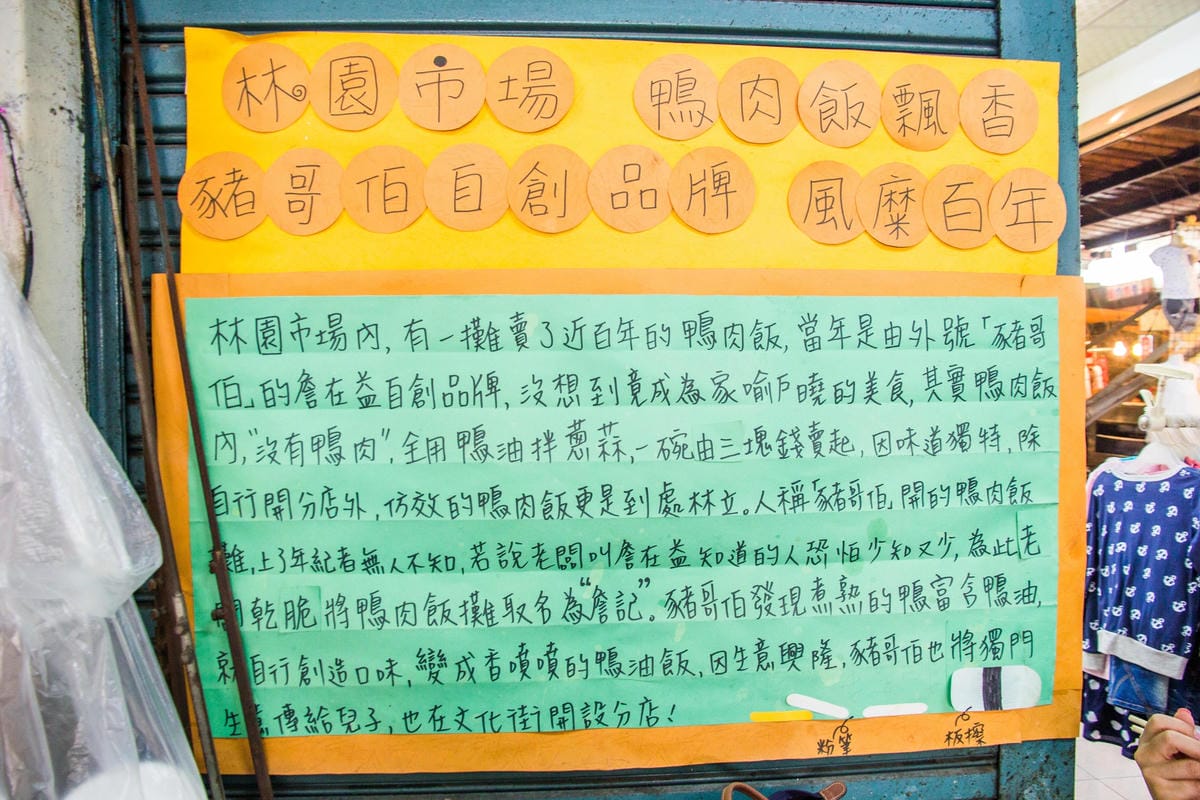 林園市場 鴨肉飯飄香
豬哥伯自創品牌 風糜百年
林園市場內,有一攤賣了近百年的鴨肉飯,當年是由外號「豬哥
伯」的詹在益自創品牌,沒想到竟成為家喻戶曉的美食,其實鴨肉飯
內,"沒有鴨肉",全用鴨油拌蔥蒜,一碗由三塊錢賣起,因味道獨特,除
自行開分店外,仿效的鴨肉飯更是到處林立。人稱「豬哥伯」開的鴨肉飯
攤,上了年紀者無人不知,若說老闆叫詹在益知道的人恐怕少知又少,為此老
闆乾脆將鴨肉飯攤取名為“詹記”。豬哥伯發現煮熟的鴨富含鴨油,
就自行創造口味,變成香噴噴的鴨油飯,因生意興隆,豬哥伯也將獨門
生意傳給兒子,也在文化街開設分店!
粉筆 板擦